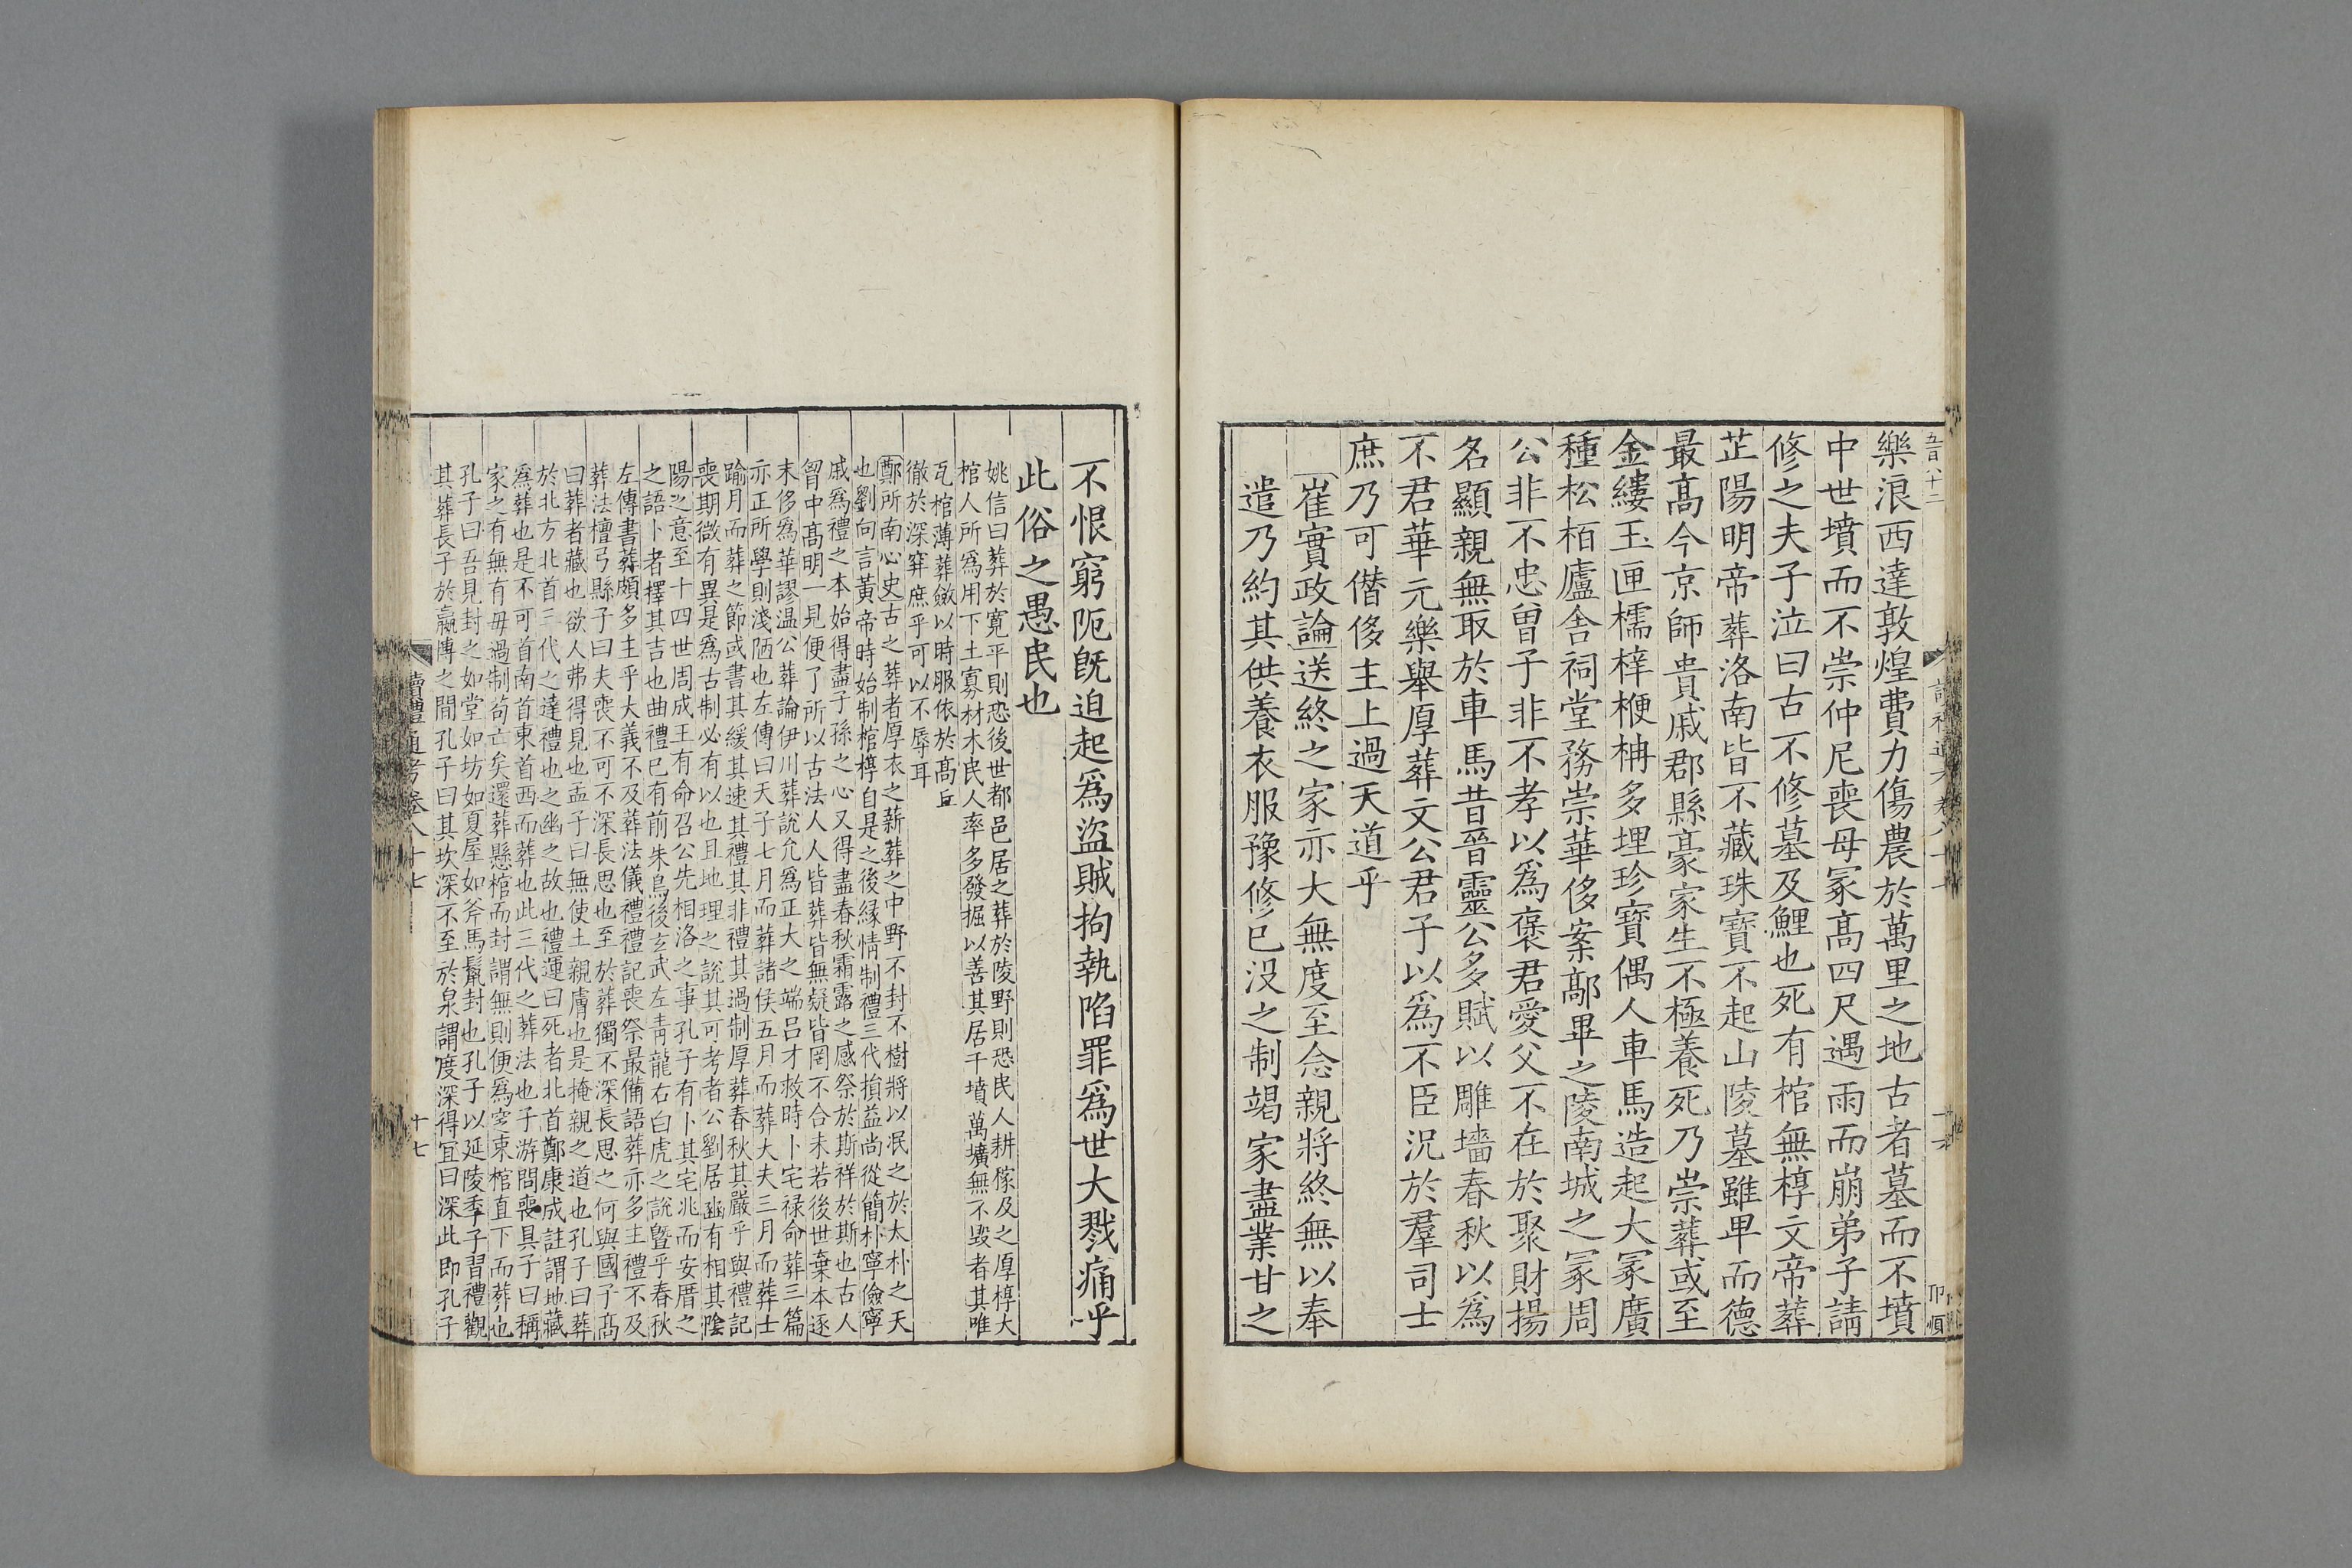 五百八十二
樂浪西達敦煌費力傷農於萬里之地古者墓而不墳
中世墳而不崇仲尼喪母冢髙四尺遇雨而崩弟子請
修之夫子泣曰古不修墓及鯉也死有棺無椁文帝葬
芷陽明帝葬洛南皆不藏珠寶不起山陵墓雖卑而德
最髙今京師貴戚郡縣豪家生不極養死乃崇葬或至
金縷玉匣檽梓楩柟多埋珍寶偶人車馬造起大冢廣
種松栢廬舍祠堂務崇華侈案鄗畢之陵南城之冢周
公非不忠曾子非不孝以爲襃君愛父不在於聚財揚
名顯親無取於車馬昔晉靈公多賦以雕墻春秋以爲
不君華元樂舉厚葬文公君子以爲不臣況於羣司士
庶乃可僭侈主上過天道乎
崔實政論送終之家亦大無度至念親將終無以奉
遣乃約其供養衣服豫修已没之制竭家盡業甘之
不恨窮阨旣迫起爲盜賊拘執陷罪爲世大戮痛乎
此俗之愚民也
姚信曰葬於寛平則恐後世都邑居之葬於陵野則恐民人耕稼及之厚椁大
棺人所爲用下土寡材木民人率多發掘以善其居千墳萬壙無不毀者其唯
瓦棺薄葬斂以時服依於髙丘
徹於深穽庶乎可以不辱耳
鄭所南心史古之葬者厚衣之薪葬之中野不封不樹將以冺之於太朴之天
也劉向言黄帝時始制棺椁自是之後縁情制禮三代損益尚從簡朴寧儉寧
戚爲禮之本始得盡子孫之心又得盡春秋霜露之感祭於斯祥於斯也古人
胷中髙明一見便了所以古法人人皆葬皆無疑皆罔不合未若後世棄本逐
末侈爲華謬温公葬論伊川葬說允爲正大之端吕才救時卜宅禄命葬三篇
亦正所學則淺陋也左傳曰天子七月而葬諸侯五月而葬大夫三月而葬士
踰月而葬之節或書其緩其速其禮其非禮其過制厚葬春秋其嚴乎與禮記
喪期微有異是爲古制必有以也且地理之說其可考者公劉居豳有相其陰
陽之意至十四世周成王有命召公先相洛之事孔子有卜其宅兆而安厝之
之語卜者擇其吉也曲禮已有前朱鳥後玄武左靑龍右白虎之說曁乎春秋
左傳書葬頗多主乎大義不及葬法儀禮禮記喪祭最備語葬亦多主禮不及
葬法檀弓縣子曰夫喪不可不深長思也至於葬獨不深長思之何與國子髙
曰葬者藏也欲人弗得見也孟子曰無使土親膚也是掩親之道也孔子曰葬
於北方北首三代之達禮也之幽之故也禮運曰死者北首鄭康成註謂地藏
爲葬也是不可首南首東首西而葬也此三代之葬法也子游問喪具子曰稱
家之有無有毋過制茍亡矣還葬懸棺而封謂無則便爲窆束棺直下而葬也
孔子曰吾見封之如堂如坊如夏屋如斧馬鬛封也孔子以延陵季子習禮觀
其葬長子於嬴博之間孔子曰其坎深不至於泉謂度深得宜曰深此即孔子
讀禮通考卷八十七
十七